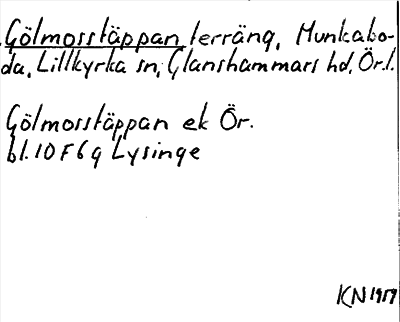 Gölmosstäppan terräng, Munkabo-
da, Lillkyrka sn, Glanshammars hd, Ör.l.
Gölmosstäppan ek Ör.
bl. 10 F 6 g Lysinge
KN 1959